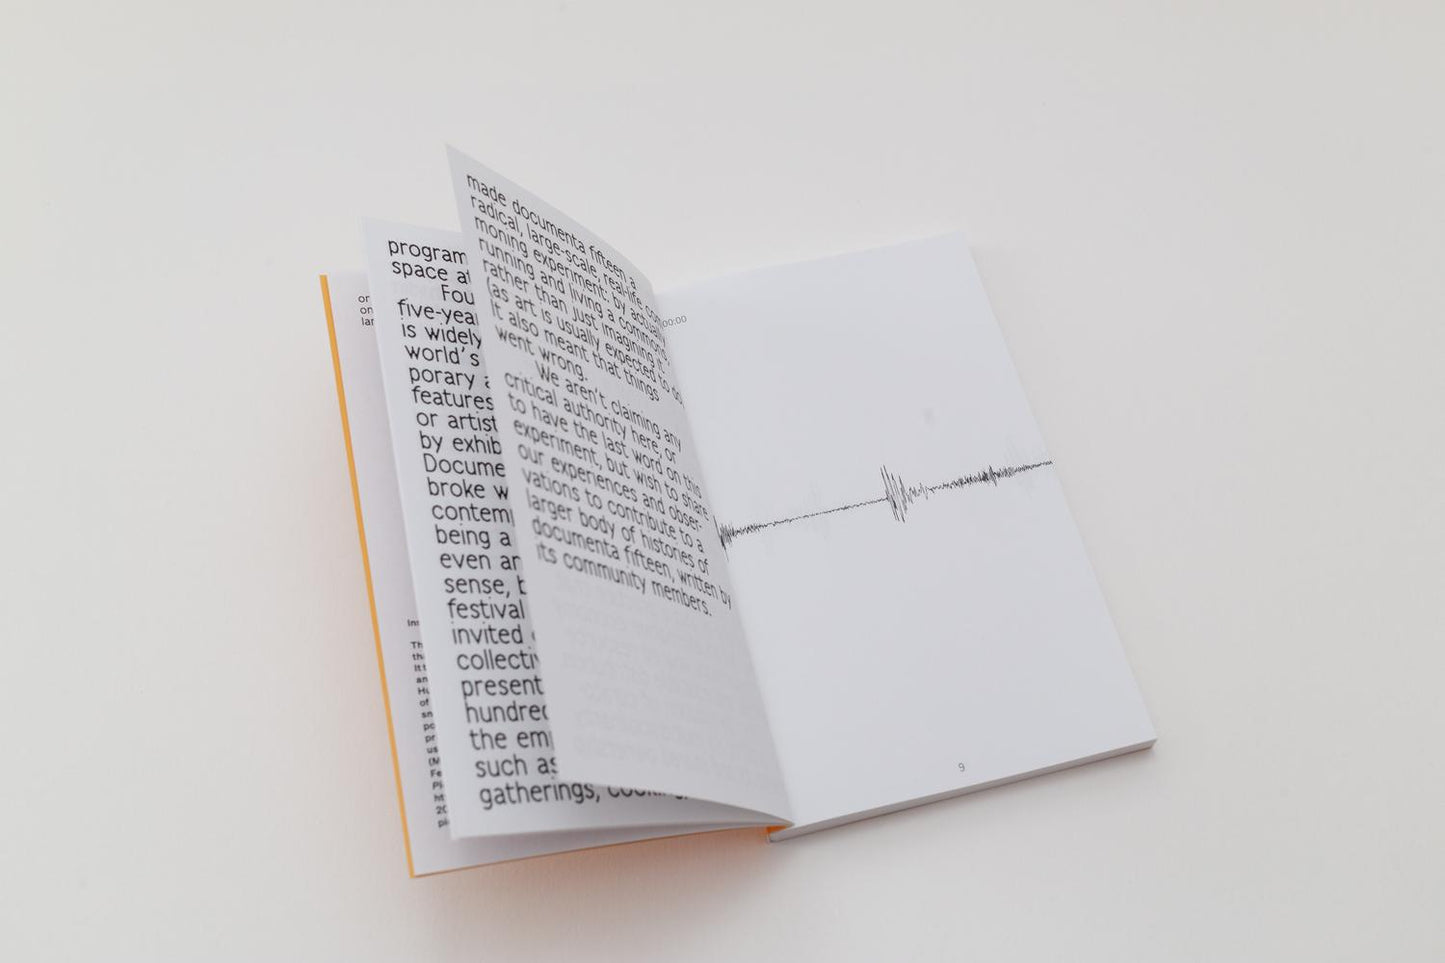 or
on
lar
Ins
Th
the
It t
an
Hu
of
sn
po
pr
us
(M
Fe
Pi
ht
20
pi
program
space at
Fou
five-year
is widely
world's
porary a
features
or artist
by exhib
Docume
broke w
contemp
being a
even ar
sense, b
festival
invited
collectiv
present
hundred
the em
such as
gatherings,
made documenta fifteen a
radical, large-scale, real-life com
moning experiment: by actually
running and living a commons,
rather than just imagining it
(as art is usually expected to do
It also meant that things
went wrong.
We aren't claiming any
critical authority here, or
to have the last word on this
experiment, but wish to share
our experiences and obser-
vations to contribute to a
larger body of histories of
documenta fifteen, written by
its community members.
00:00
9